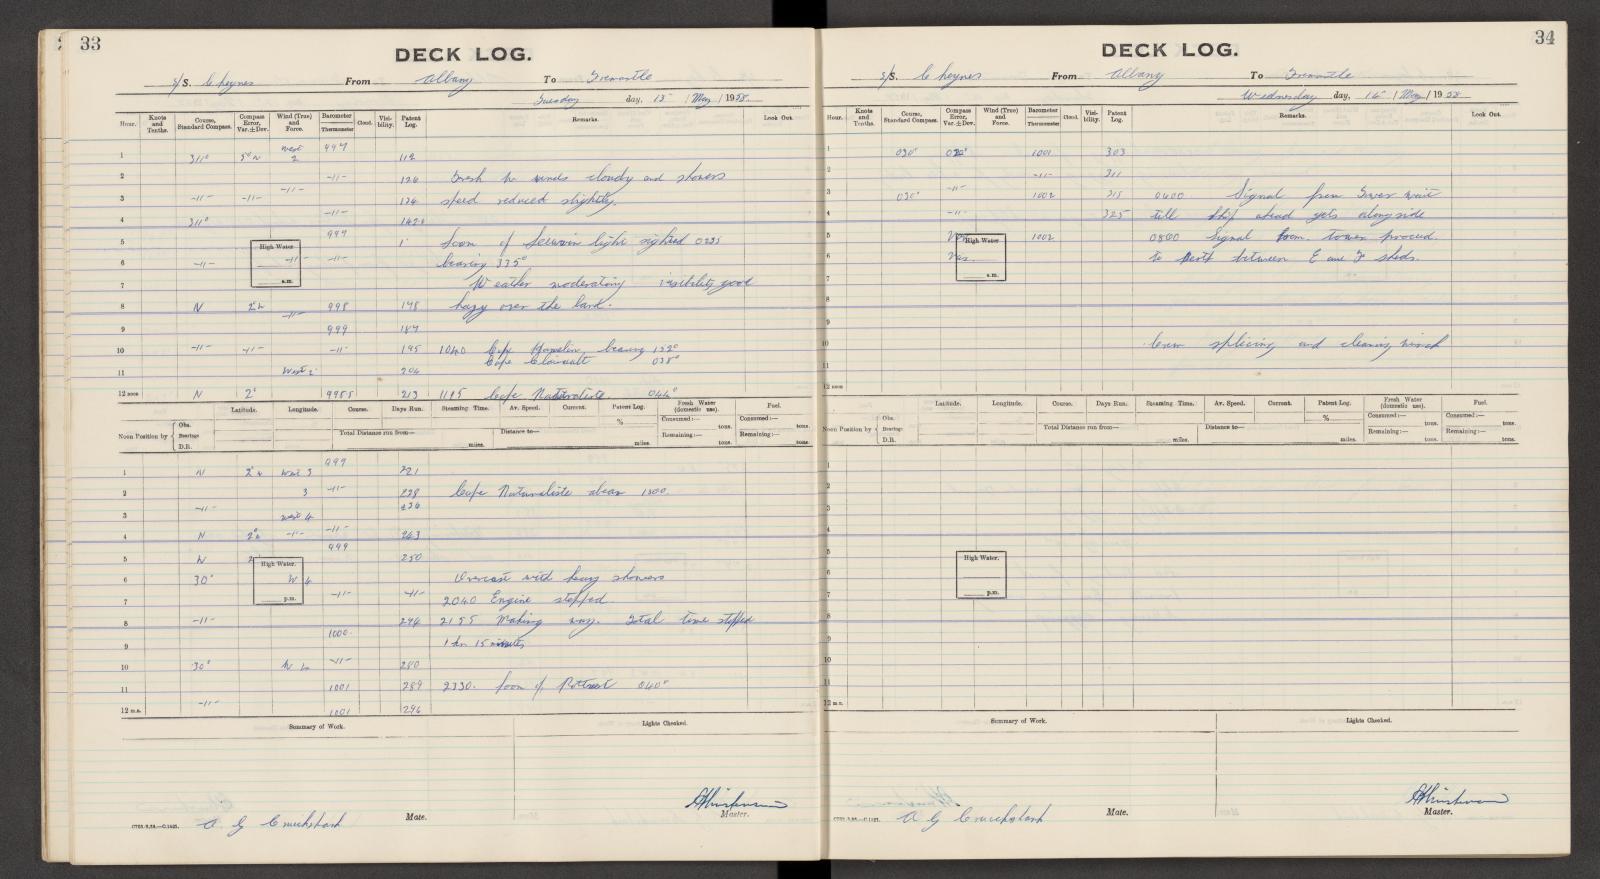 33
DECK LOG.
s/S. Cheynes From Albany To Fremantle
Tuesday day, 15 / May / 19
Hour. Knots and Tenths. Course, Standard Compass. Compass Error, Var.±Dev. Wind (True) and Force. Barometer Thermometer Cloud. Visibility. Patent Log. Remarks. Look Out.
1 311° West 2 997 112
2 -11- 126 Fresh winds cloudy and showers
3 -11- -11- -11- 134 speed reduced slightly.
4 311° -11- 142
5 999 Loom of Leeuwin light sighted 0235
6 -11- -11- -11- bearing 335°
High Water a.m.
7 Weather moderating visibility good
8 N -11- 998 178 hazy over the land.
9 999 187
10 -11- -11- -11- 195 1040 Cape Hamelin bearing 132°
Cape Clairault 038°
11 West 2 204
12 noon N 2° 9985 213 1195 Cape Naturaliste 044°
Latitude. Longitude. Course. Days Run. Steaming Time. Av. Speed. Current. Patent Log. Fresh Water (domestic use). Fuel.
% Consumed:— tons. Consumed:— tons.
Noon Position by { Obs. Bearings D.R. Total Distance run from— miles. Distance to— miles. Remaining:— tons. Remaining:— tons.
1 N West 3 999 221
2 3 -11- 228 Cape Naturaliste abeam 1300.
3 -11- West 4 236
4 N -11- -11- 243
5 999 250
High Water. p.m.
6 30° W 4 Overcast with heavy showers
7 -11- -11- 2040 Engine stopped
8 -11- 1000 2155 Making way. Total time stopped
9 1 hr 15 minutes
10 30° -11- 280
11 1001 289 2330. Loom of Rottnest 040°
12 m.n. -11- 1001 296
Summary of Work. Lights Checked.
A G Cruickshank Mate. Master.
34
DECK LOG.
s/S. Cheynes From Albany To Fremantle
Wednesday day, 16 / May / 19
Hour. Knots and Tenths. Course, Standard Compass. Compass Error, Var.±Dev. Wind (True) and Force. Barometer Thermometer Cloud. Visibility. Patent Log. Remarks. Look Out.
1 030° 1001 303
2 -11- 311
3 030° -11- 1002 315 0400 Signal from Tower wait
4 -11- 325 till ship ahead gets alongside
5 1002 0800 Signal from tower proceed
6 to berth between E and F sheds.
High Water a.m.
7
8
9
10 Crew splicing and cleaning winch
11
12 noon
Latitude. Longitude. Course. Days Run. Steaming Time. Av. Speed. Current. Patent Log. Fresh Water (domestic use). Fuel.
% Consumed:— tons. Consumed:— tons.
Noon Position by { Obs. Bearings D.R. Total Distance run from— miles. Distance to— miles. Remaining:— tons. Remaining:— tons.
1
2
3
4
5
High Water. p.m.
6
7
8
9
10
11
12 m.n.
Summary of Work. Lights Checked.
A G Cruickshank Mate. Master.